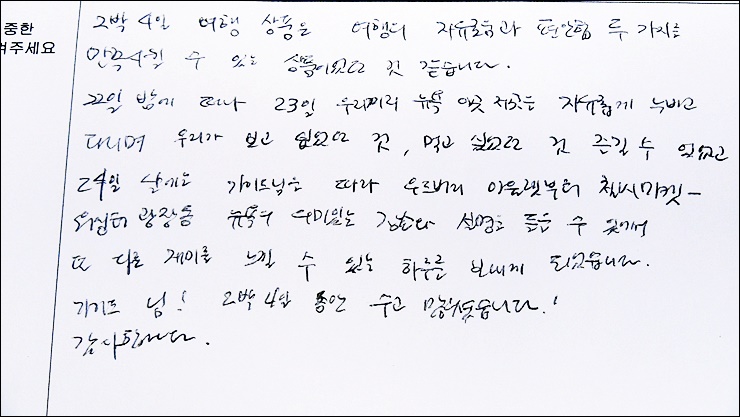 중한
겨주세요
2박 4일 여행 상품은 여행의 자유로움과 편안함 두 가지를
만족시킬 수 있는 상품이었던 것 같습니다.
22일 밤에 떠나 23일 우리끼리 뉴욕 이곳 저곳을 자유롭게 누비고
다니며 우리가 보고 싶었던 것, 먹고 싶었던 것 즐길 수 있었고
24일 날에는 가이드님을 따라 우드버리 아울렛부터 첼시마켓-
워싱턴 광장등 뉴욕의 설명을 들을 수 있어서
또 다른 재미를 느낄 수 있는 하루를 보내게 되었습니다.
가이드 님! 2박 4일 동안 수고 많으셨습니다!
감사합니다.